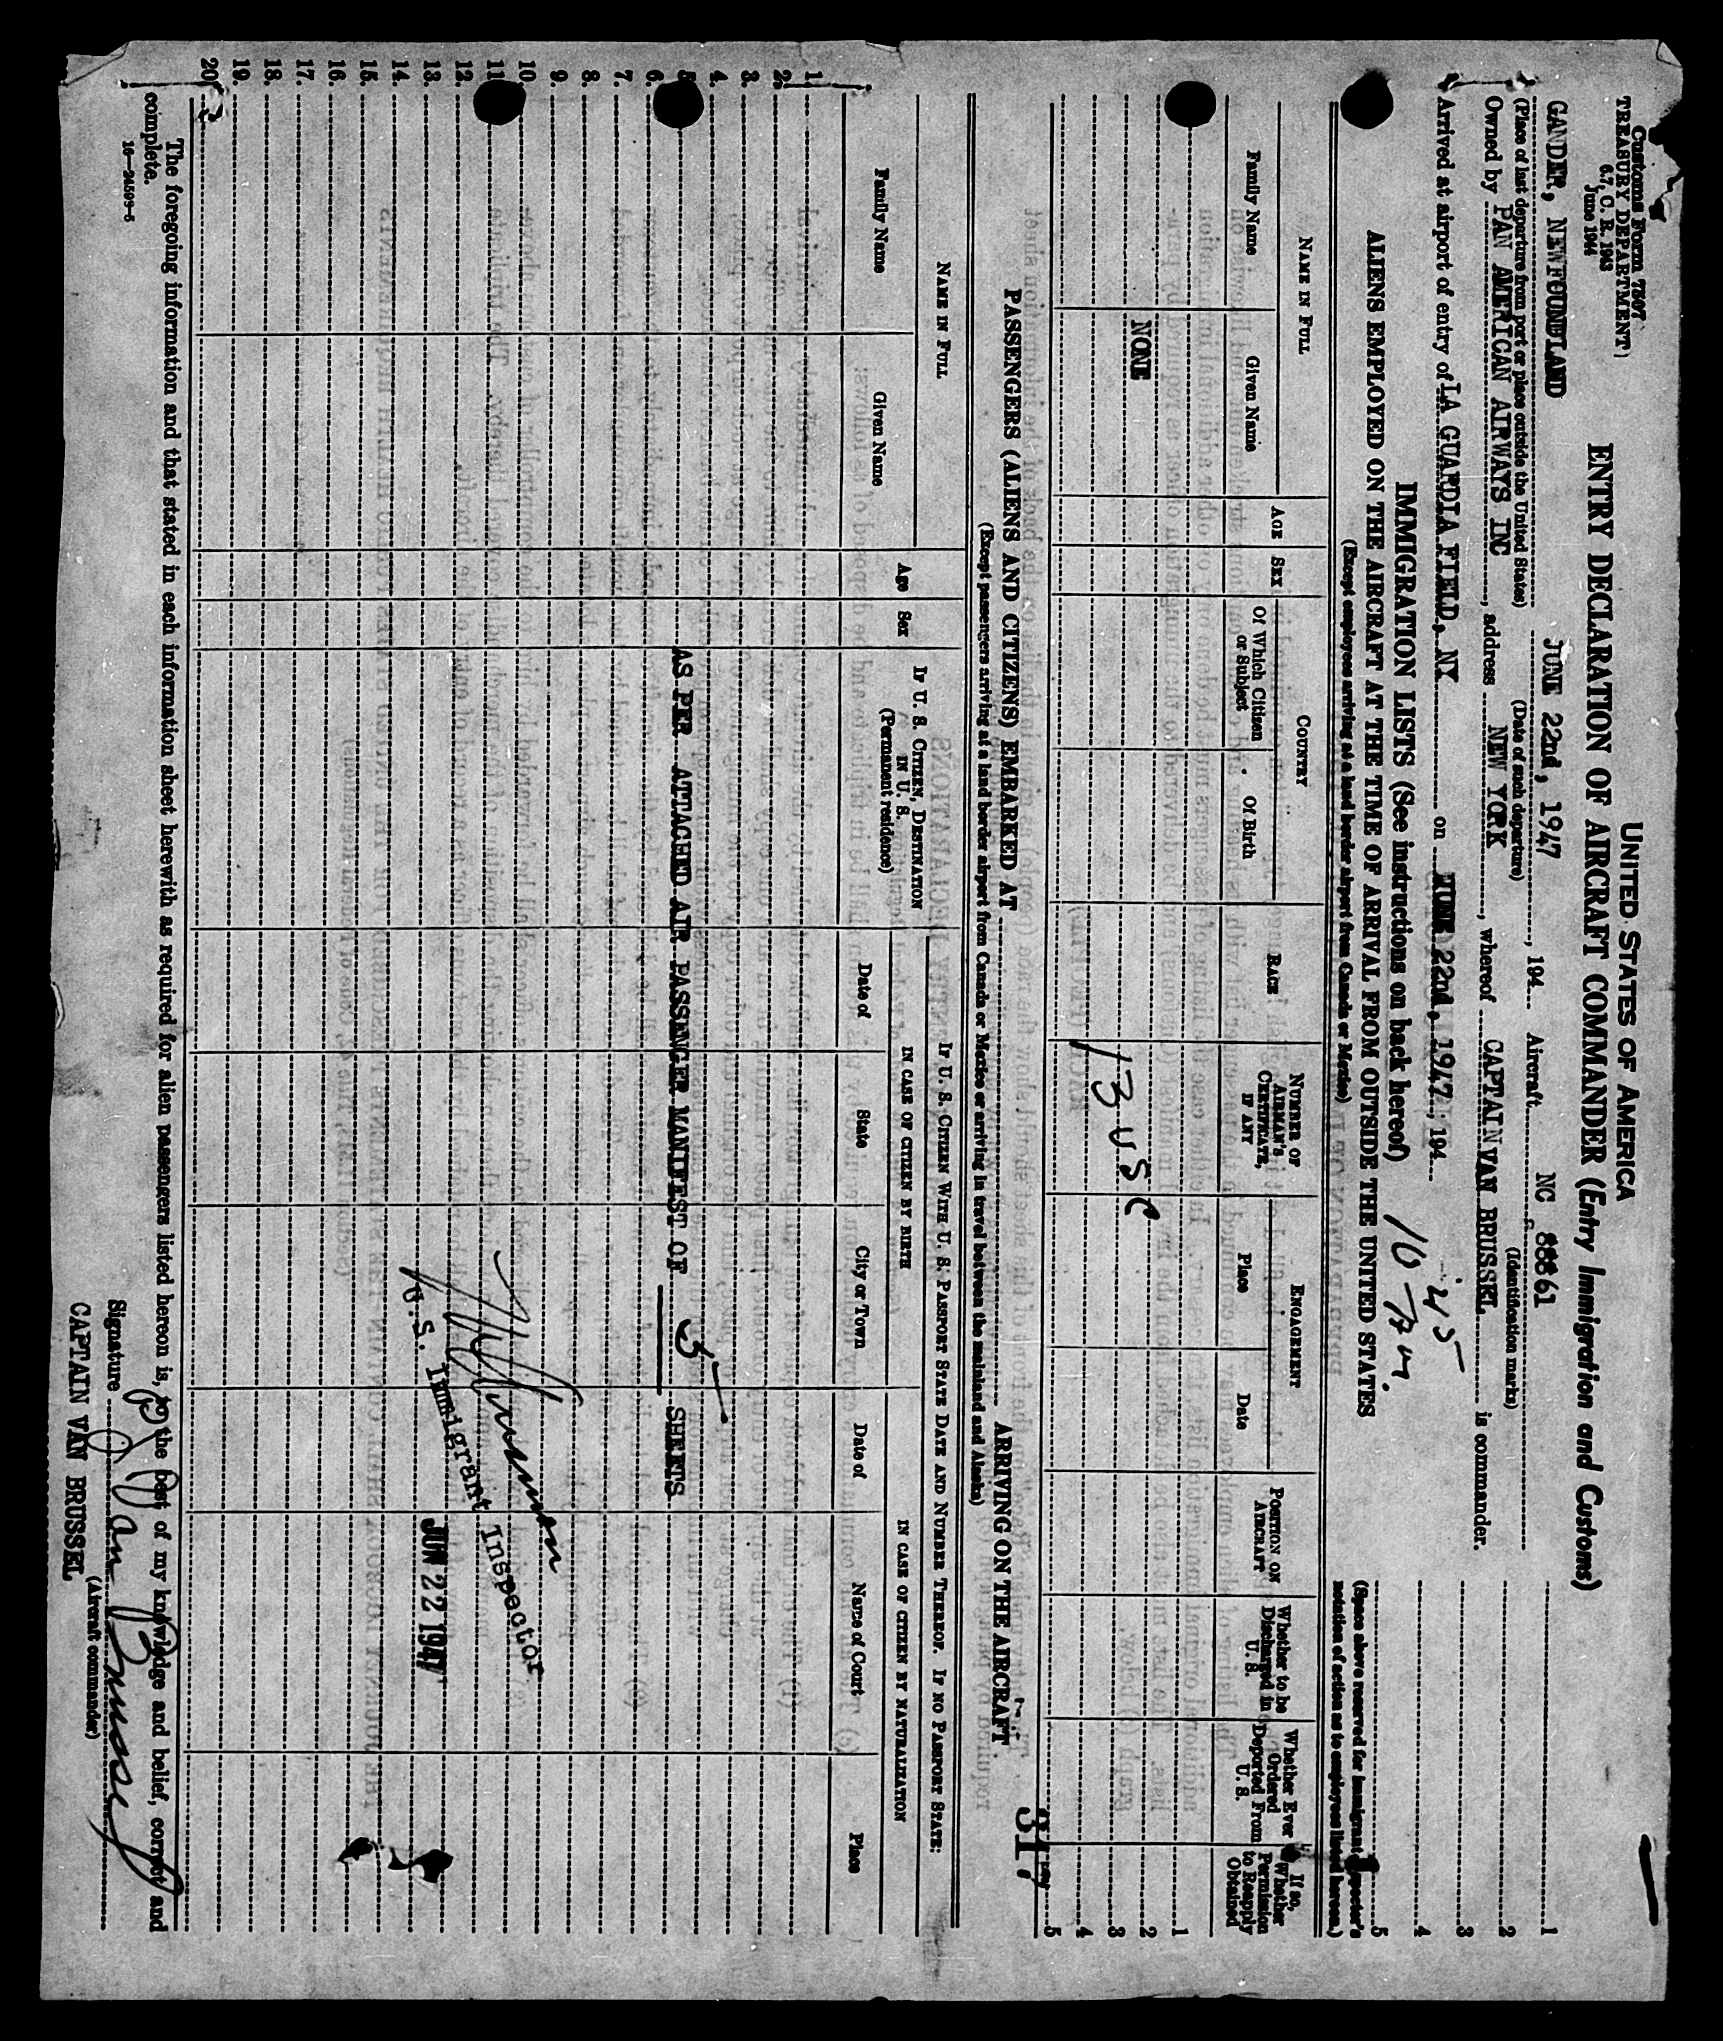 Customs Form 7507
TREASURY DEPARTMENT
6.7, C. R. 1943
June 1944
UNITED STATES OF AMERICA
ENTRY DECLARATION OF AIRCRAFT COMMANDER (Entry Immigration and Customs)
GANDER, NEWFOUNDLAND JUNE 22nd, 1947, 194 Aircraft NC 88861
(Place of last departure from port or place outside the United States) (Date of such departure) (Identification marks)
Owned by PAN AMERICAN AIRWAYS INC, address NEW YORK, whereof CAPTAIN VAN BRUSSEL is commander.
Arrived at airport of entry of LA GUARDIA FIELD, NY on JUNE 22nd, 1947, 194
IMMIGRATION LISTS (See instructions on back hereof)
ALIENS EMPLOYED ON THE AIRCRAFT AT THE TIME OF ARRIVAL FROM OUTSIDE THE UNITED STATES
(Except employees arriving at a land border airport from Canada or Mexico)
1
2
3
4
5
(Space above reserved for immigrant inspector's
notation of action as to employees listed hereon.)
NAME IN FULL
Family Name
Given Name
AGE
SEX
COUNTRY
Of Which Citizen or Subject
Of Birth
RACE
NUMBER OF AIRMAN'S CERTIFICATE, IF ANY
ENGAGEMENT
Place
Date
POSITION ON AIRCRAFT
Whether to be Discharged in U. S.
Whether Ever Ordered Deported From U. S.
If so, Whether Permission to Reapply Obtained
NONE
13 USC
1
2
3
4
5
317
PASSENGERS (ALIENS AND CITIZENS) EMBARKED AT ARRIVING ON THE AIRCRAFT
(Except passengers arriving at a land border airport from Canada or Mexico or arriving in travel between the mainland and Alaska)
NAME IN FULL
Family Name
Given Name
Age
Sex
IF U. S. CITIZEN, DESTINATION IN U. S.
(Permanent residence)
IF U. S. CITIZEN WITH U. S. PASSPORT STATE DATE AND NUMBER THEREOF. IF NO PASSPORT STATE:
IN CASE OF CITIZEN BY BIRTH
Date of
State
City or Town
IN CASE OF CITIZEN BY NATURALIZATION
Date of
Name of Court
Place
1.
2.
3.
4.
5. AS PER ATTACHED AIR PASSENGER MANIFEST OF 5 SHEETS
6.
7.
8.
9.
10.
11.
12.
13.
14.
15.
16.
17.
18.
19.
20.
U. S. Immigrant Inspector
JUN 22 1947
The foregoing information and that stated in each information sheet herewith as required for alien passengers listed hereon is, to the best of my knowledge and belief, correct and
complete.
16—24599-5
Signature
(Aircraft commander)
CAPTAIN VAN BRUSSEL